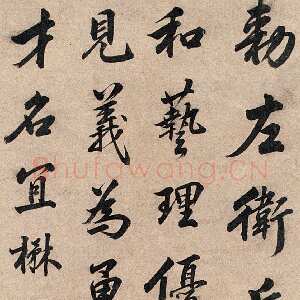 勅左衛
和藝理優
見義為勇
才名宜楙
Shufawang.CN